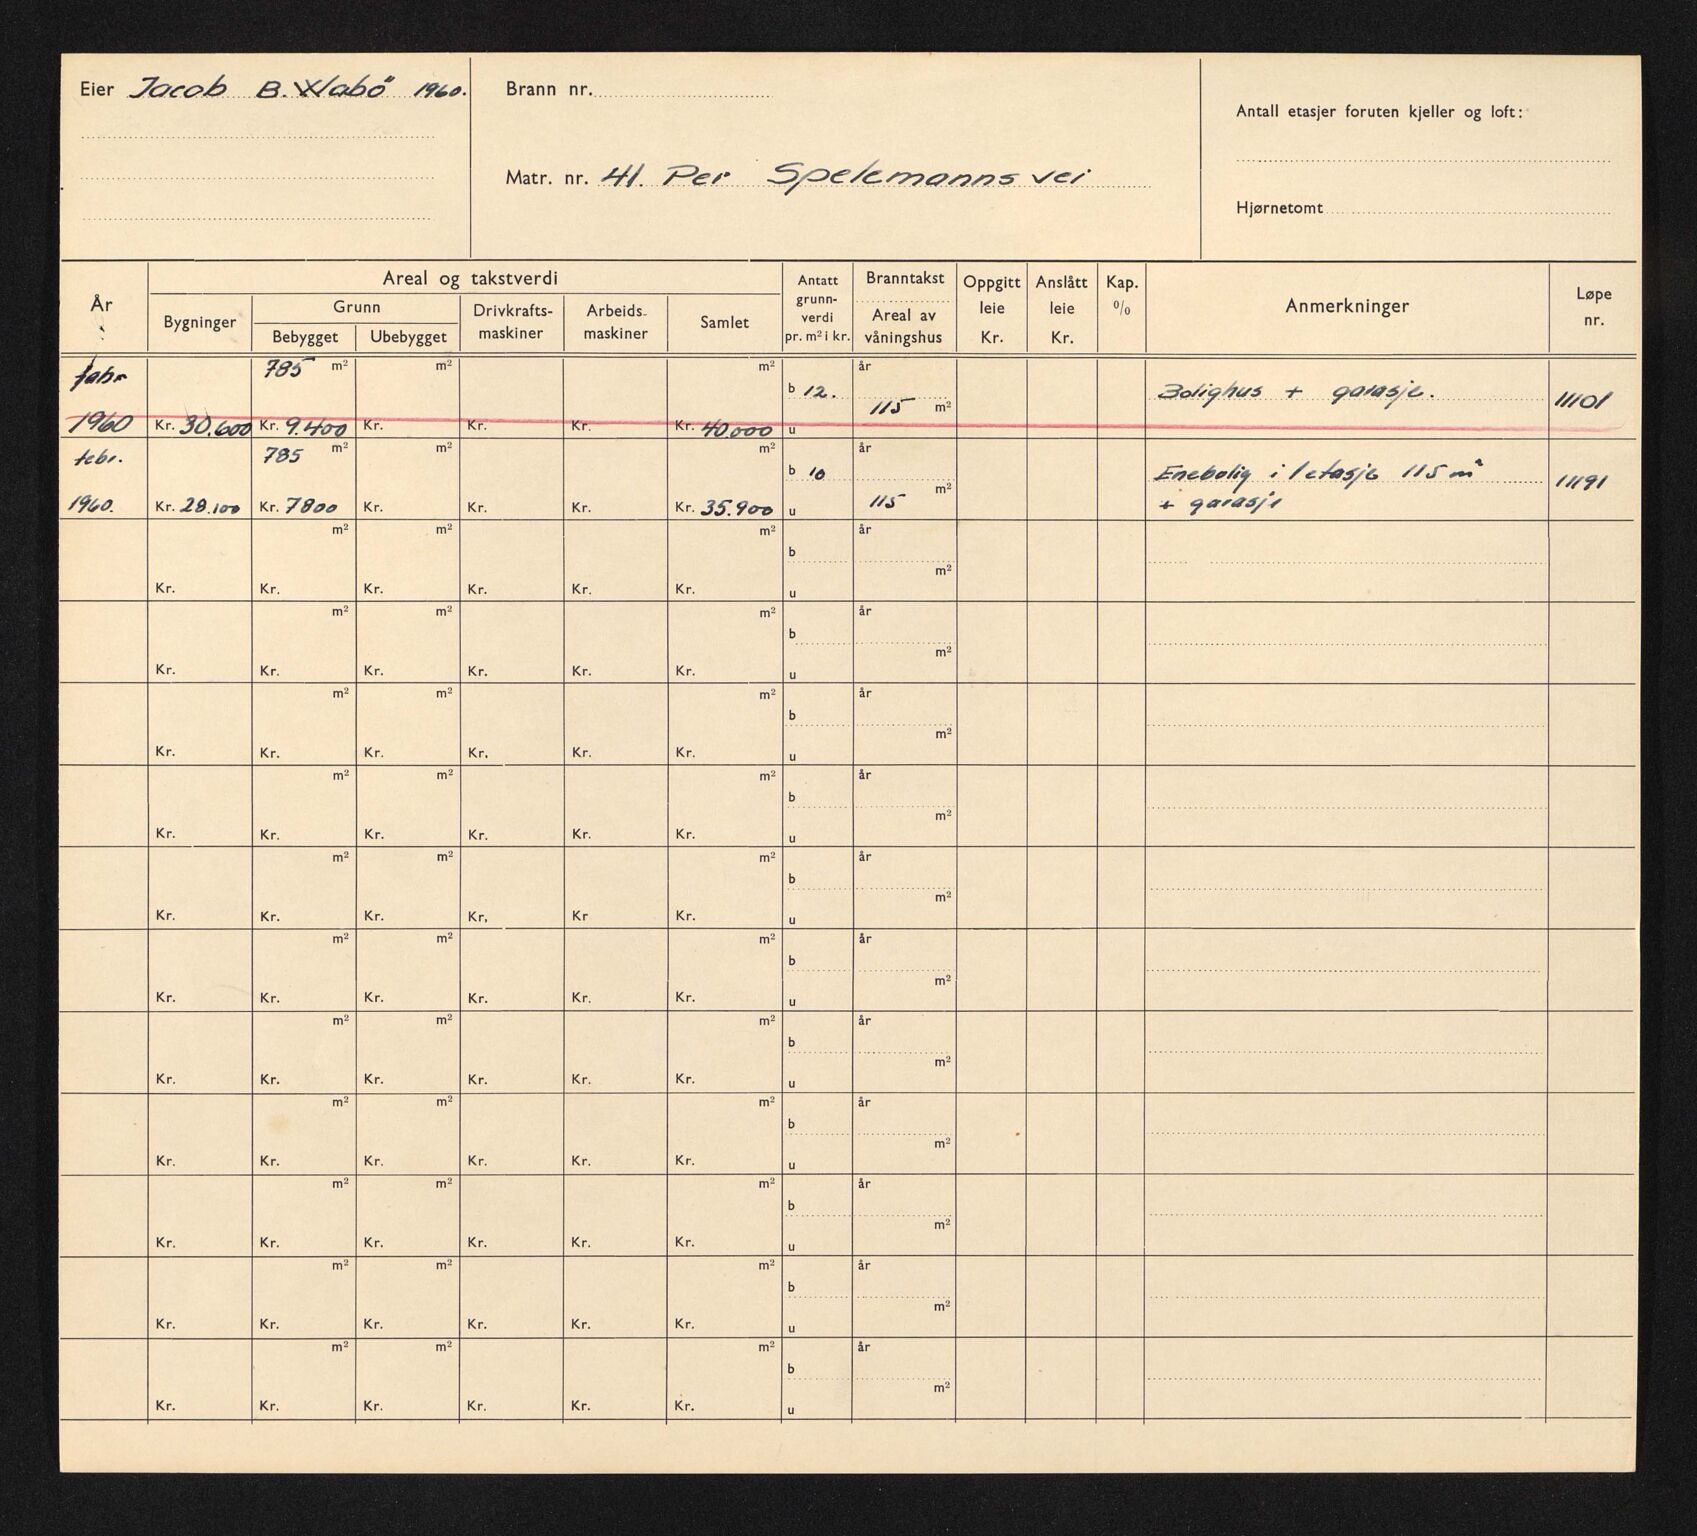 Eier Jacob B. Wabö 1960.
Brann nr.
Matr. nr. 41. Per Spelemanns vei
Antall etasjer foruten kjeller og loft:
Hjørnetomt
År
Areal og takstverdi
Bygninger
Grunn
Bebygget
Ubebygget
Drivkrafts-
maskiner
Arbeids-
maskiner
Samlet
Antatt
grunn-
verdi
pr. m² i kr.
Branntakst
Areal av
våningshus
Oppgitt
leie
Kr.
Anslått
leie
Kr.
Kap.
%
Anmerkninger
Løpe
nr.
febr 785 m² m² m² b 12. år Bolighus + garasje. 11101
1960 Kr. 30.600 Kr. 9.400 Kr. Kr. Kr. Kr. 40.000 u 115 m²
febr. 785 m² m² m² b 10 år Enebolig i 1 etasje 115 m² 11191
1960. Kr. 28.100 Kr. 7800 Kr. Kr. Kr. Kr. 35.900 u 115 m² + garasje
m² m² m² b år
Kr. Kr. Kr. Kr. Kr. Kr. u m²
m² m² m² b år
Kr. Kr. Kr. Kr. Kr. Kr. u m²
m² m² m² b år
Kr. Kr. Kr. Kr. Kr. Kr. u m²
m² m² m² b år
Kr. Kr. Kr. Kr. Kr. Kr. u m²
m² m² m² b år
Kr. Kr. Kr. Kr, Kr Kr. u m²
m² m² m² b år
Kr. Kr. Kr. Kr. Kr. Kr. u m²
m² m² m² b år
Kr. Kr. Kr. Kr. Kr. Kr. u m²
m² m² m² b år
Kr. Kr. Kr. Kr. Kr. Kr. u m²
m² m² m² b år
Kr. Kr. Kr. Kr. Kr. Kr. u m²
m² m² m² b år
Kr. Kr. Kr. Kr. Kr. Kr. u m²
m² m² m² b år
Kr. Kr. Kr. Kr. Kr. Kr. u m²